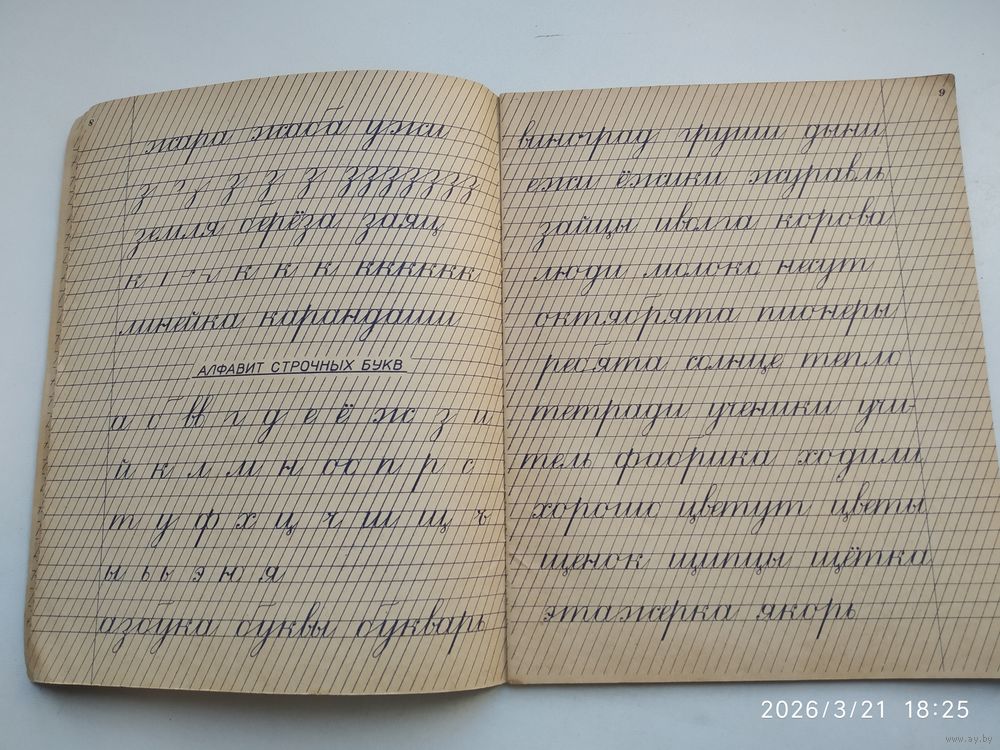 8
жара жаба ужи
з з з з з ззззззз
земля берёза заяц
к к к к кккккк
линейка карандаши
АЛФАВИТ СТРОЧНЫХ БУКВ
а б вв г д е ё ж з и
й к л м н оо п р с
т у ф х ц ч ш щ ъ
ы ьь э ю я
азбука буквы букварь
9
виноград груши дыни
ежи ёжики журавль
зайцы иволга корова
люди молоко несут
октябрята пионеры
ребята солнце тепло
тетради ученики учи-
тель фабрика ходили
хорошо цветут цветы
щенок щипцы щётка
этажерка якорь
2026/3/21 18:25
www.ay.by